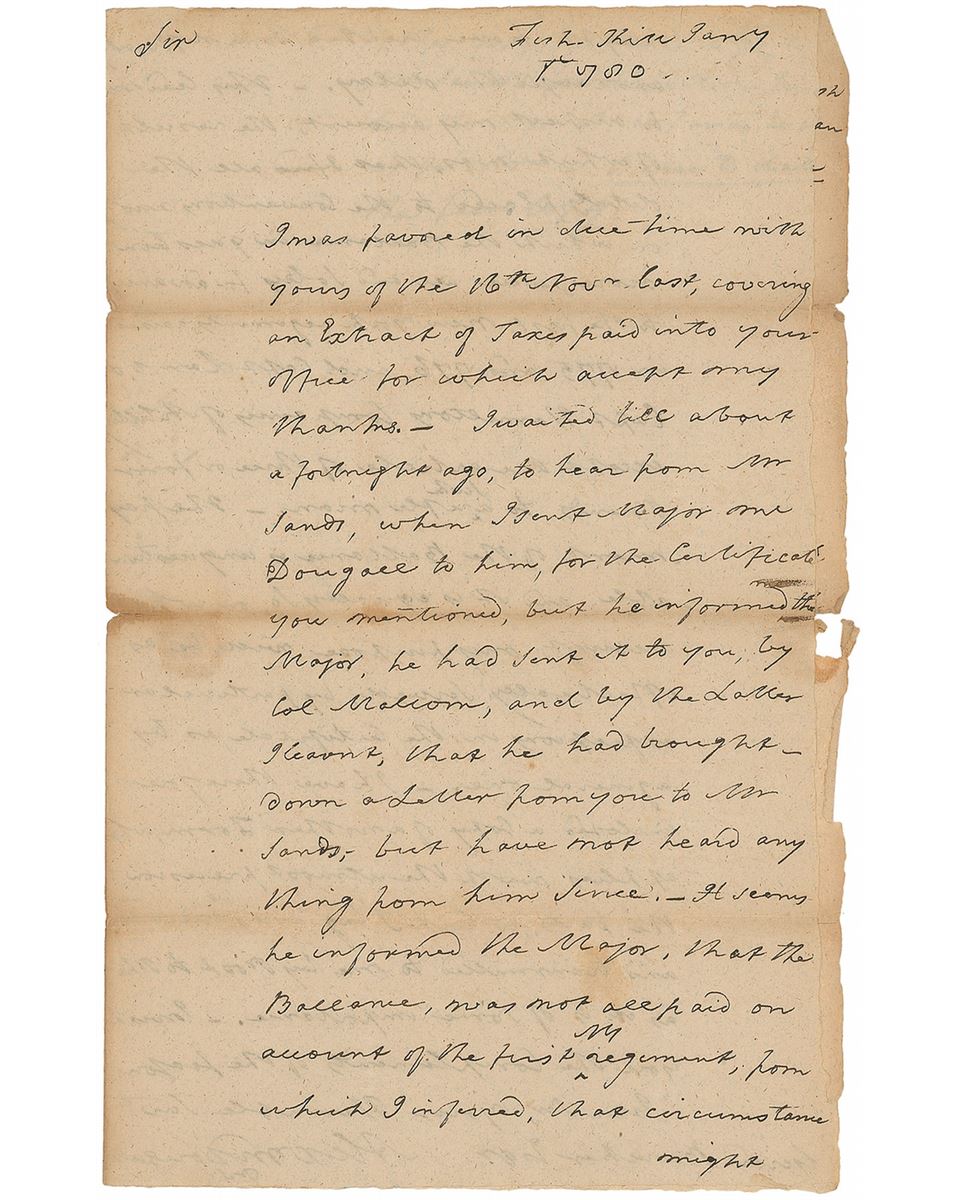 Sir
Fish-Kill Jany
1st 1780
sh
an
I was favored in due time with
yours of the 16th Novr last, covering
an Extract of Taxes paid into your
office for which accept my
thanks.— I waited till about
a fortnight ago, to hear from Mr
Sands, when I sent Major mc
Dougall to him, for the Certificate
you mentioned, but he informed the
Major, he had sent it to you, by
Col Malcom, and by the Latter
I learnt, that he had brought—
down a Letter from you to Mr
Sands,- but have not heard any
thing from him since.— It seems
he informed the Major, that the
Ballance, was not all paid on
NY
account of the first ^ regiment, from
which I inferred, that circumstance
might